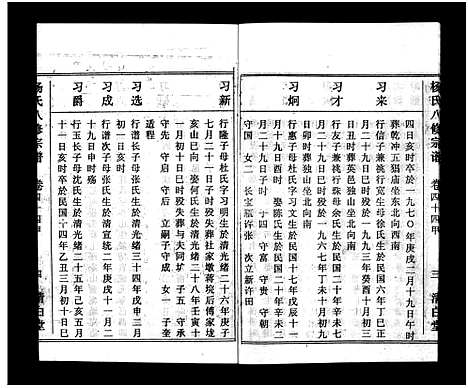 杨氏八修宗谱 卷四十四甲 三 清白堂
四日亥时卒於一九七〇年庚戌二月十九日午时
葬乾冲五猖庙坐东北向西南
习来
行信子兼祧行宽生母徐氏生於民国六年丁巳正
月二十九日巳时殁於一九九三年癸酉十一月十
一日丑时葬英邑独山坐北向南
习才
行友子兼祧行珠母余氏生於民国二十年辛未七
月二十九日巳时殁於一九六七年丁未十一月十
日卯时葬独山坐北向南
习炯
行惠子母陈氏字习文生於民国二十年辛未十二
月二十九日戌时 子四 守富 守贵 守朝
守国 女二 长宝 次立新许田
习新
行隆子母杜氏字习明生於清光绪二十六年庚子
七月二十一日亥时殁失葬杜家墩蒋垸后傅家垅
亥山巳向 娶何氏生於清光绪二十八年壬寅十
一月初十日巳时殁失葬与夫同圹 子五 守承
守先 守启 守后 立嗣子守成 女一 子奎
适程
习选
行镜长子母张氏生於清光绪三十四年戊申三月
初一日亥时
习成
行谱次子母张氏生於清宣统二年庚戌十一月二
十九日申时殇
习爵
行元长子母张氏生於清光绪二十五年己亥二月
十一日亥时卒於民国十四年乙丑三月初十日巳
杨氏八修宗谱 卷四十四甲 四 清白堂